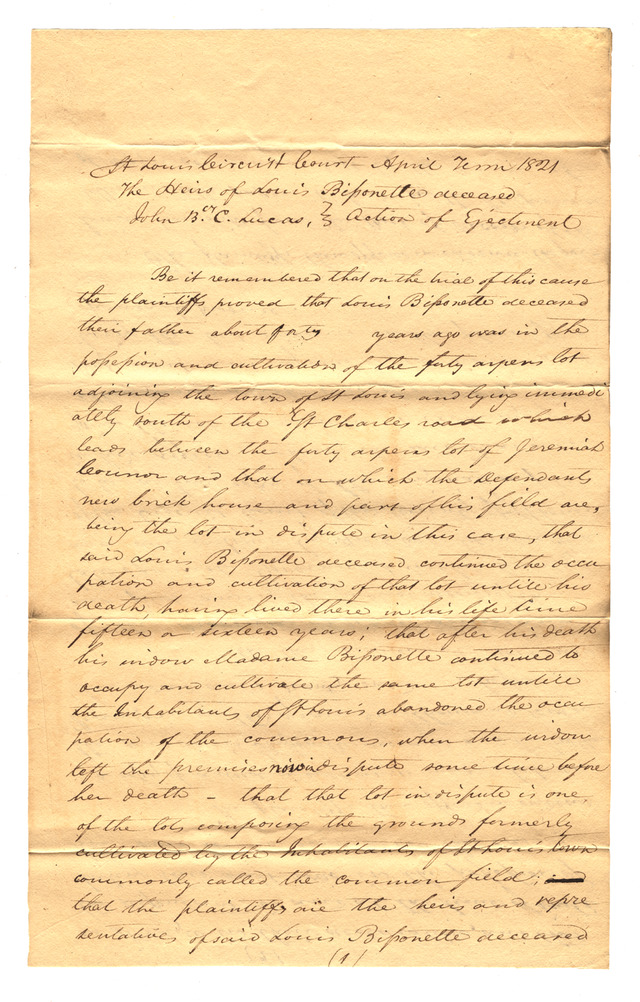 St Louis Circuit Court - April Term 1821
The Heirs of Louis Bissonette deceased
John B. C. Lucas, } Action of Ejectment
Be it remembered that on the trial of this cause
the plaintiffs proved that Louis Bissonette deceased
their father about forty years ago was in the
possession and cultivation of the forty arpens lot
adjoining the town of St Louis and lying immedi
ately south of the St Charles road which
leads between the forty arpens lot of Jeremiah
Connor and that on which the Defendants
new brick house and part of his field are,
being the lot in dispute in this case, that
said Louis Bissonette deceased continued the occu
pation and cultivation of that lot untill his
death, having lived there in his life time
fifteen or sixteen years; that after his death
his widow Madame Bissonette continued to
occupy and cultivate the same lot untill
the Inhabitants of St Louis abandoned the occu
pation of the commons, when the widow
left the premises now in dispute some time before
her death - that that lot in dispute is one
of the lots composing the grounds formerly
cultivated by the Inhabitants of St Louis town
commonly called the common field;
that the plaintiffs are the heirs and repre
sentatives of said Louis Bissonette deceased
(1)